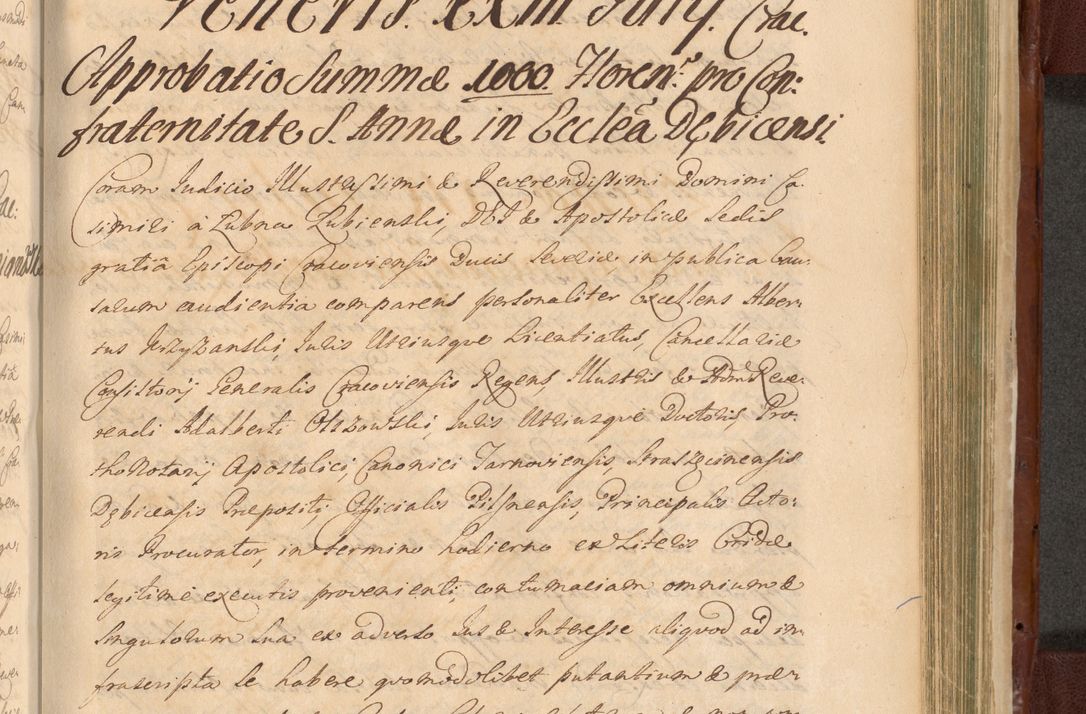 Veneris. XXIII July. Crac.
Approbatio Summæ 1000. Floren: pro Con:
fraternitate S. Annæ in Ecclea Dębicensi.
Coram Iudicio Illustrissimi & Reverendissimi Domini Ca-
simiri à Łubna Łubienski, DEI & Apostolicæ Sedis
gratiâ Episcopi Cracoviensis Ducis Severiæ, in publica Cau:
sarum audientia comparens personaliter Excellens Alber-
tus Krzyżanski, Iuris Utriusque Licentiatus, Cancellariæ
Consistorij Generalis Cracoviensis Regens, Illustris & Admd Reve-
rendi Adalberti Olszowski, Iuris Utriusque Doctoris, Pro-
thoNotarij Apostolici, Canonici Tarnoviensis, Straszęcinensis
Dębicensis Præpositi, Officialis Pilsnensis, Principalis Acto-
ris Procurator, in termino hodierno ex Literis Cridæ
legitimè executis provenienti, contumaciam omnium &
Singulorum Sua ex adverso Ius & Interesse aliquod ad in-
frascripta se habere quomodolibet putantium & præ-